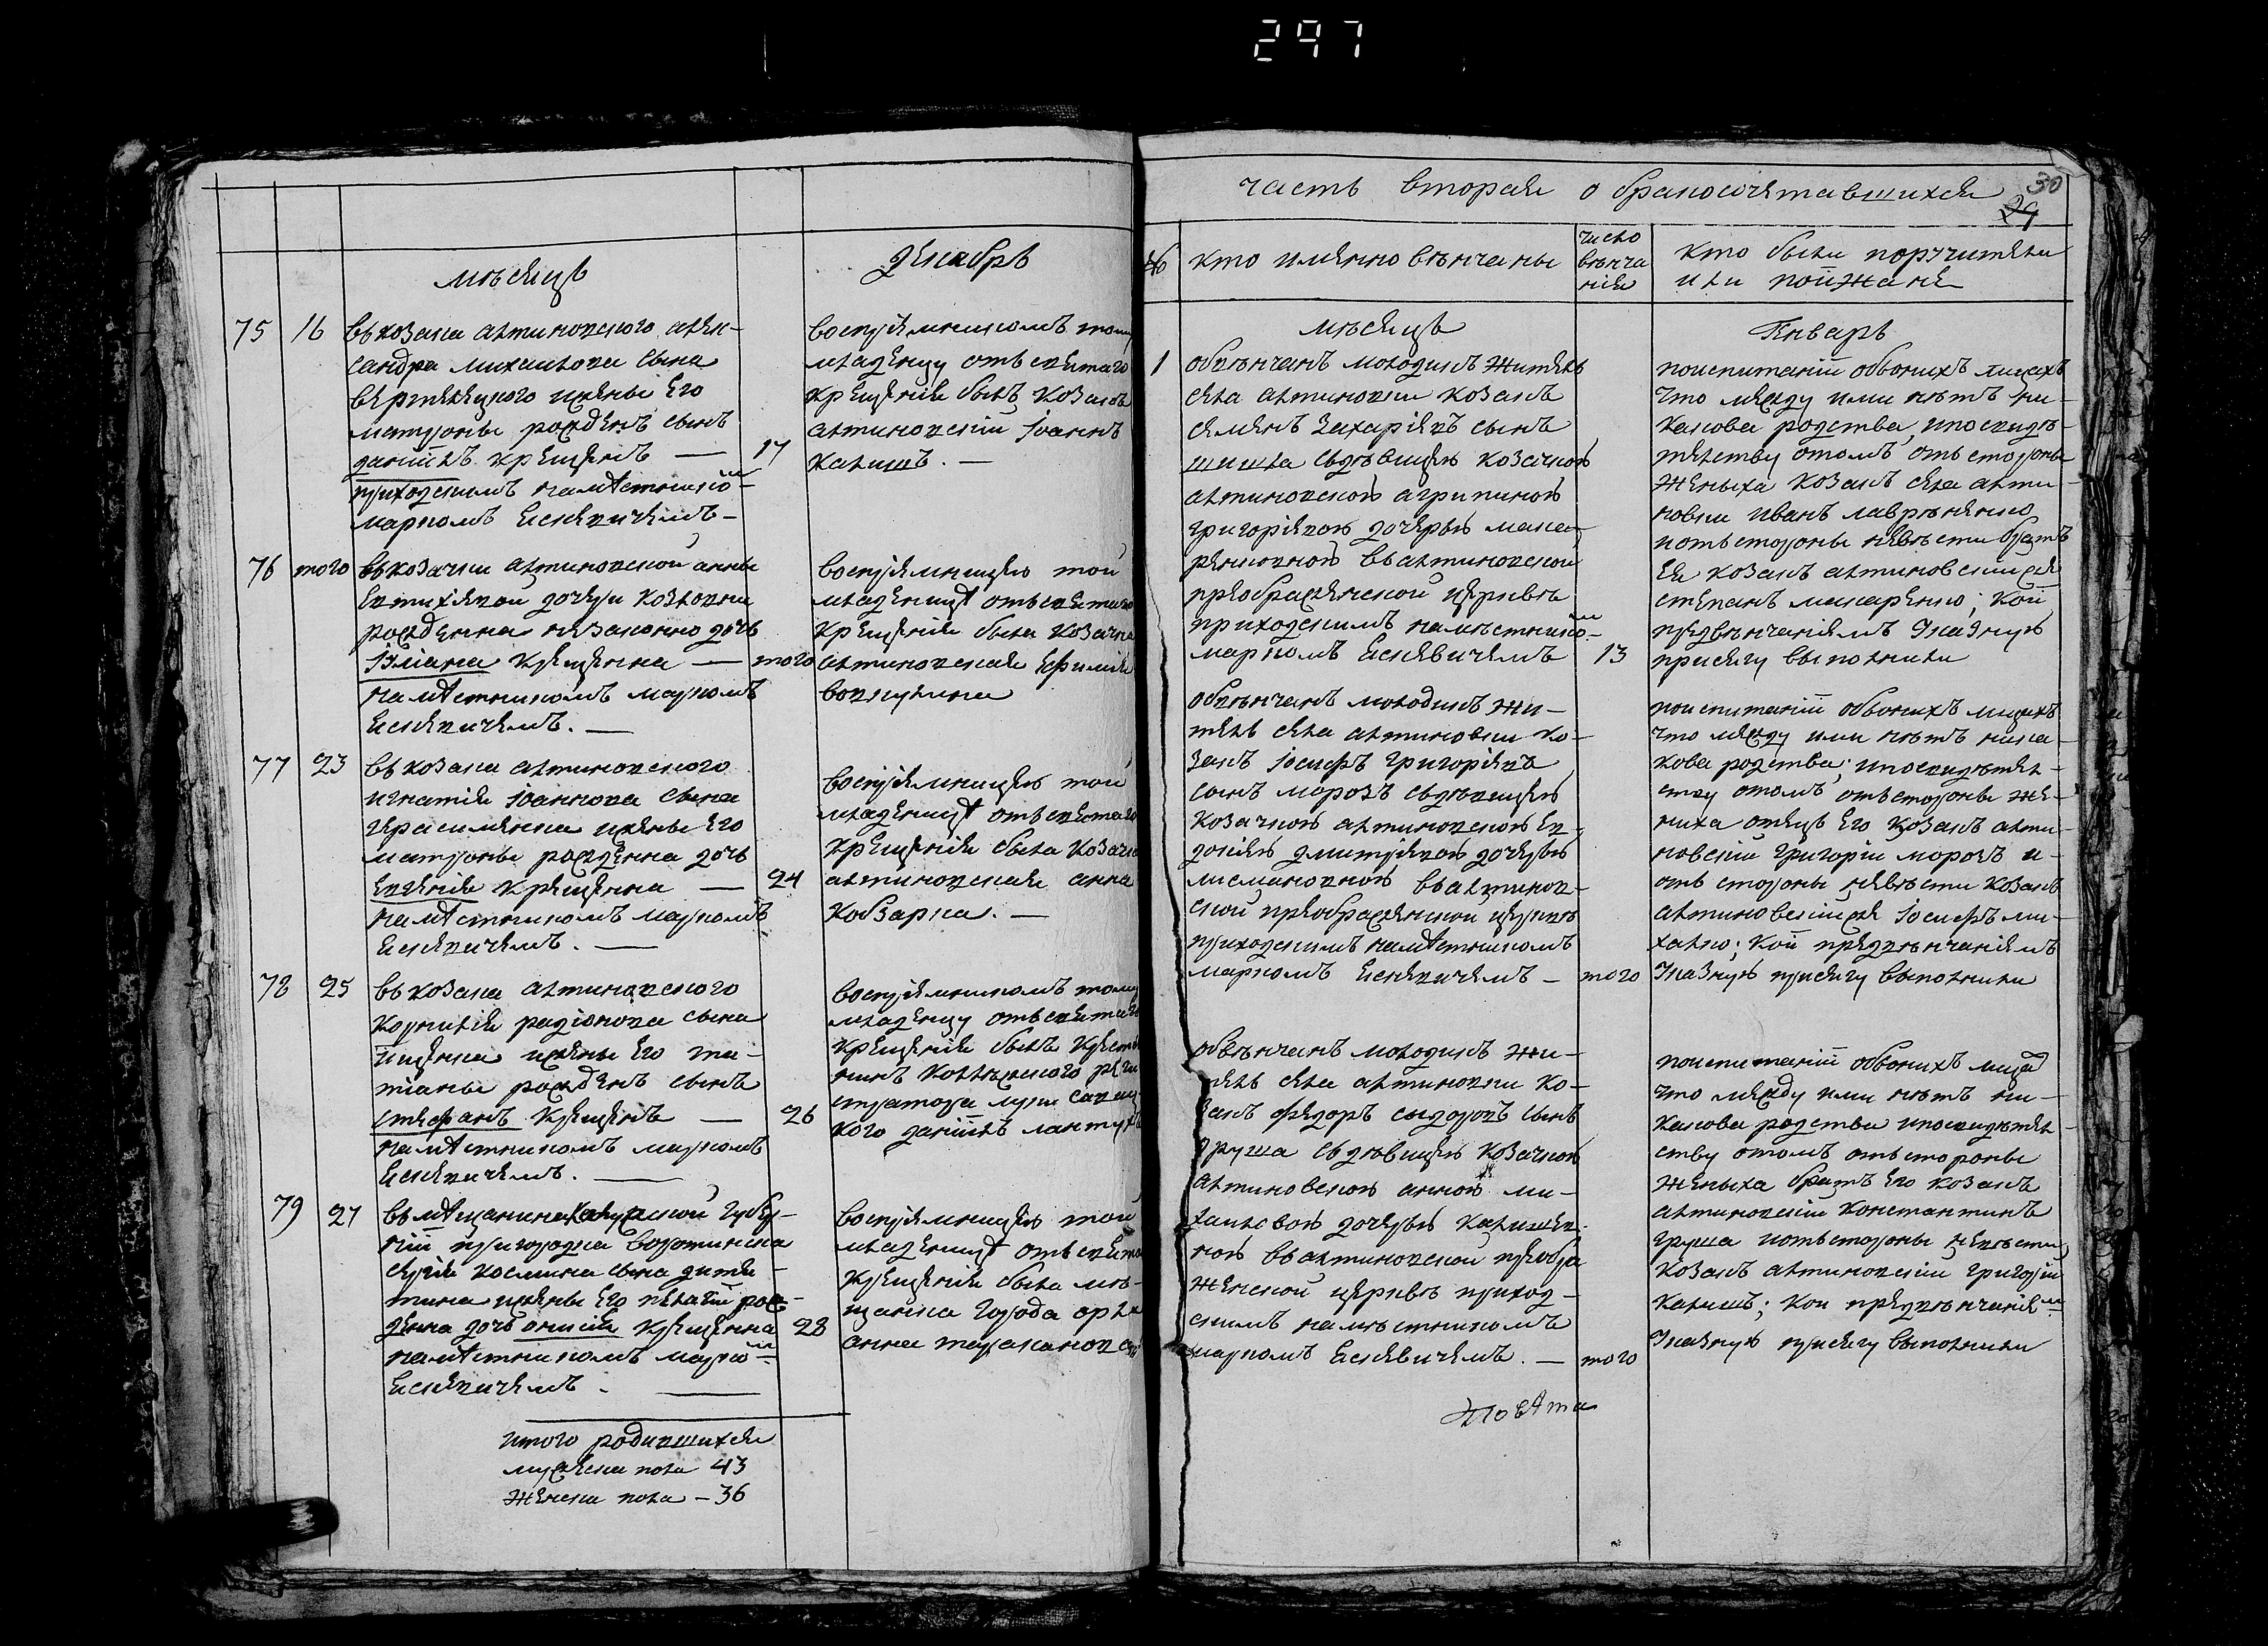 297
мѣсяцъ
декабрь
75 16 въ козака алтиновского алек-
сандра михаилова сына
вертелецкого и жены его
матроны рожденъ сынъ
даніилъ крещенъ — 17
приходскимъ намѣстникомъ
маркомъ еснкевичемъ —
воспріемникомъ тому
младенцу отъ святаго
крещенія былъ козакъ
алтиновскій іоаннъ
калишъ. —
76 того въ козачки алтиновской анны
евтихіевой дочери козловны
рожденна незаконно дочь
іуліана крещенна — того
намѣстникомъ маркомъ
. —
воспріемницею той
младеницѣ отъ святаго
крещенія была козачка
алтиновская ефимія

77 23 въ козака алтиновского
игнатія іоаннова сына
герасименка и жены его
матроны рожденна дочь
евгенія крещенна — 24
намѣстникомъ маркомъ
. —
воспріемницею той
младеницѣ отъ святаго
крещенія была козачка
алтиновская анна
кобзарка. —
78 25 въ козака алтиновского
корнилія радіонова сына
ищенка и жены его та-
тіаны рожденъ сынъ
стефанъ крещенъ — 26
намѣстникомъ маркомъ
. —
воспріемникомъ тому
младенцу отъ святаго
крещенія былъ крестья
нинъ коллежского реги
стратора луки савиц
кого даніилъ лантух
79 27 въ мѣщанина калужской губер-
ніи пригородка воротинска
сергія космина сына
и жены его пелагіи рож-
денна дочь онисія крещенна 28
намѣстникомъ маркомъ
. —
воспріемницею той
младеницѣ отъ свята
крещенія была мѣ-
щанка города орла
анна тараканова
итого родившихся
мужеска пола 43
женска пола — 36
часть вторая о бракосочетавшихся
30
29
№ кто именно вѣнчаны
число
вѣнча
нія
кто были поручители
или поѣзжане
мѣсяцъ
Январь
1 обвѣнчанъ молодикъ житель
села алтиновки козакъ
семенъ захаріевъ сынъ
шишка съ дѣвицею козачкою
алтиновскою агрипиною
григоріевою дочерью мака-
ренковною въ алтиновской
преображенской церквѣ
приходскимъ намѣстникомъ
маркомъ 13
по испытаніи обоихъ лицахъ
что между ими нѣтъ ни-
какова родства, и по свидѣ-
телству о томъ отъ стороны
женыха козакъ села алти-
новки иванъ лавриненко
и отъ стороны невѣсти братъ
ея козакъ алтиновскій же
степанъ макаренко; кой
предъ вѣнчаніемъ указную
присягу выполнили
обвѣнчанъ молодикъ жи-
тель села алтиновки ко-
закъ іосифъ григоріевъ
сынъ морозъ съ дѣвицею
козачкою алтиновскою ев-
докіею дмитріевою дочерью
лисмановною въ алтинов-
ской преображенской церквѣ
приходскимъ намѣстникомъ
маркомъ — того
по испытаніи обоихъ лицахъ
что между ими нѣтъ ника-
кова родства; и по свидѣтел-
ству о томъ отъ стороны же-
ниха отецъ его козакъ алти-
новскій григорій морозъ и-
отъ стороны невѣсти козакъ
алтиновскій же іосифъ ми-
халко; кой предъ вѣнчаніемъ
указную присягу выполнили
обвѣнчанъ молодикъ жи-
тель села алтиновки ко-
закъ федоръ сидоровъ сынъ
груша съ дѣвицею козачкою
алтиновскою анною ми-
хаиловою дочерью калишев-
ною въ алтиновской преобра
женской церквѣ приход-
скимъ намѣстникомъ
маркомъ . — того
по испытаніи обоихъ лицъ
что между ими нѣтъ ни-
какова родства и по свидѣтел
ству о томъ отъ стороны
женыха братъ его козакъ
алтиновскій константинъ
груша и отъ стороны невѣсти
козакъ алтиновскій григорій
калишъ; кои предъ вѣнчаніемъ
указную присягу выполнили